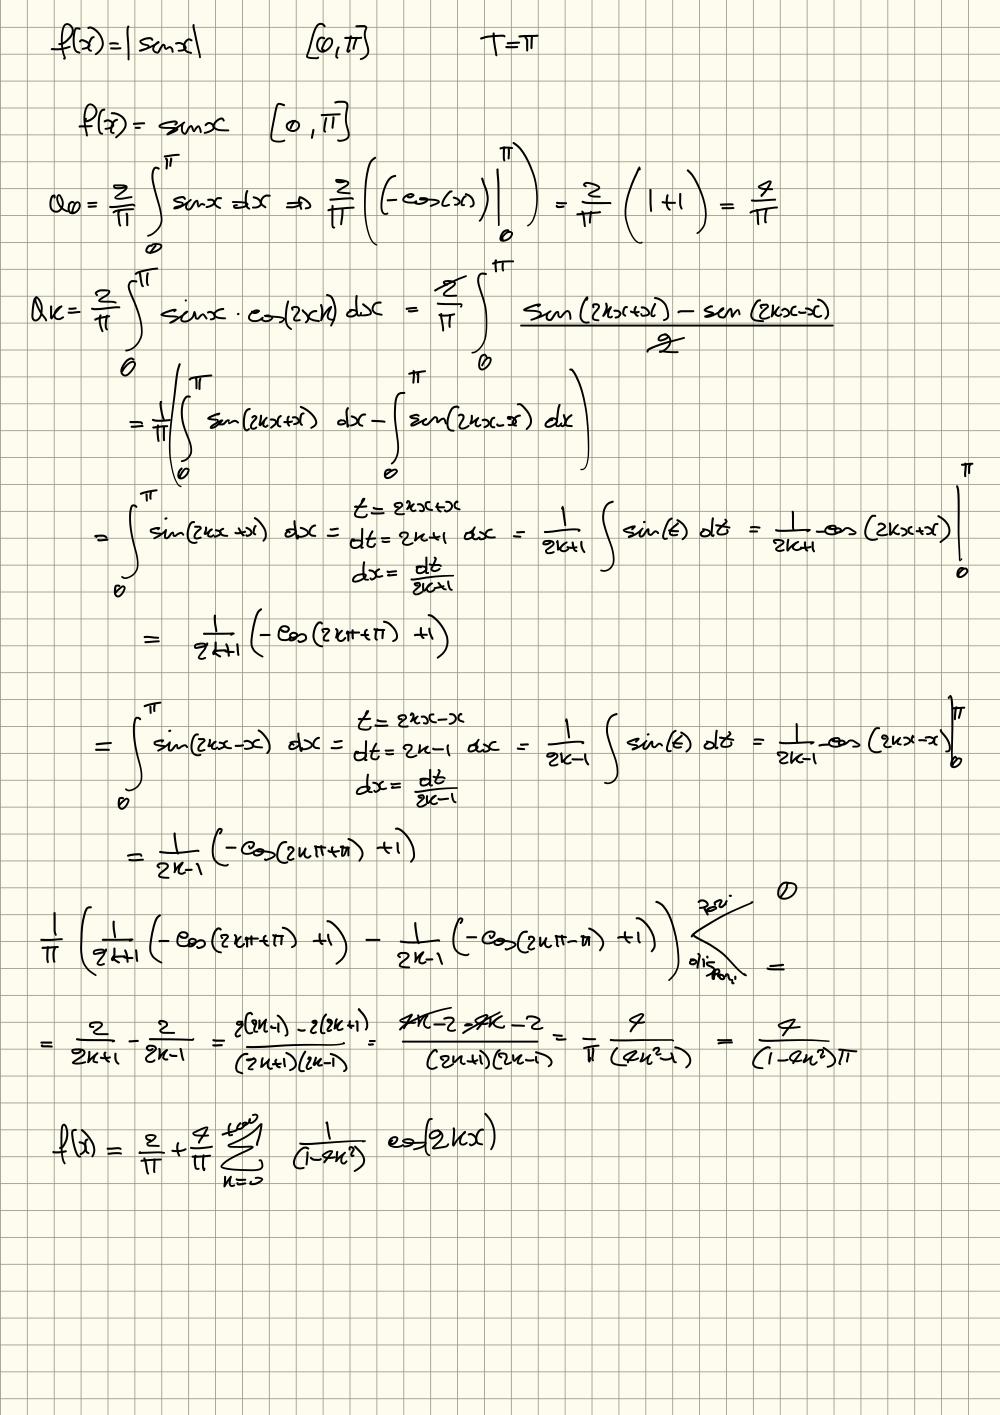 f(x)=|senx| [0,π] T=π
f(x)= senx [0,π]
a₀ = 2/π ∫₀^π senx dx ⇒ 2/π ((-cos(x))|₀^π) = 2/π (1+1) = 4/π
aₖ = 2/π ∫₀^π senx · cos(2xk) dx = 2/π ∫₀^π (sen(2kx+x) - sen(2kx-x))/2
= 1/π (∫₀^π sen(2kx+x) dx - ∫₀^π sen(2kx-x) dx)
= ∫₀^π sin(2kx+x) dx = t = 2kx+x dt = 2k+1 dx dx = dt/(2k+1) = 1/(2k+1) ∫ sin(t) dt = 1/(2k+1) -cos(2kx+x)|₀^π
= 1/(2k+1) (-cos(2kπ+π) +1)
= ∫₀^π sin(2kx-x) dx = t = 2kx-x dt = 2k-1 dx dx = dt/(2k-1) = 1/(2k-1) ∫ sin(t) dt = 1/(2k-1) -cos(2kx-x)|₀^π
= 1/(2k-1) (-cos(2kπ+π) +1)
1/π (1/(2k+1) (-cos(2kπ+π) +1) - 1/(2k-1) (-cos(2kπ-π) +1)) < pari 0 dispari =
= 2/(2k+1) - 2/(2k-1) = (2(2k-1) - 2(2k+1))/((2k+1)(2k-1)) = (4k-2-4k-2)/((2k+1)(2k-1)) = -/π 4/(4k²-1) = 4/((1-4k²)π)
f(x) = 2/π + 4/π Σ_{k=0}^{+∞} 1/(1-4k²) cos(2kx)